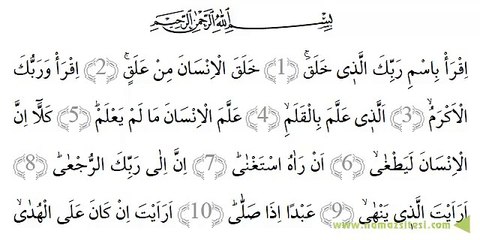 بِسْمِ اللّٰهِ الرَّحْمٰنِ الرَّحِيمِ
اِقْرَأْ بِاسْمِ رَبِّكَ الَّذ۪ي خَلَقَۚ (1) خَلَقَ الْاِنْسَانَ مِنْ عَلَقٍۚ (2) اِقْرَأْ وَرَبُّكَ
الْاَكْرَمُۙ (3) اَلَّذ۪ي عَلَّمَ بِالْقَلَمِۙ (4) عَلَّمَ الْاِنْسَانَ مَا لَمْ يَعْلَمْۜ (5) كَلَّٓا اِنَّ
الْاِنْسَانَ لَيَطْغٰىۙ (6) اَنْ رَاٰهُ اسْتَغْنٰىۜ (7) اِنَّ اِلٰى رَبِّكَ الرُّجْعٰىۜ (8)
اَرَاَيْتَ الَّذ۪ي يَنْهٰىۙ (9) عَبْدًا اِذَا صَلّٰىۜ (10) اَرَاَيْتَ اِنْ كَانَ عَلَى الْهُدٰىۙ
www.namazsitesi.com